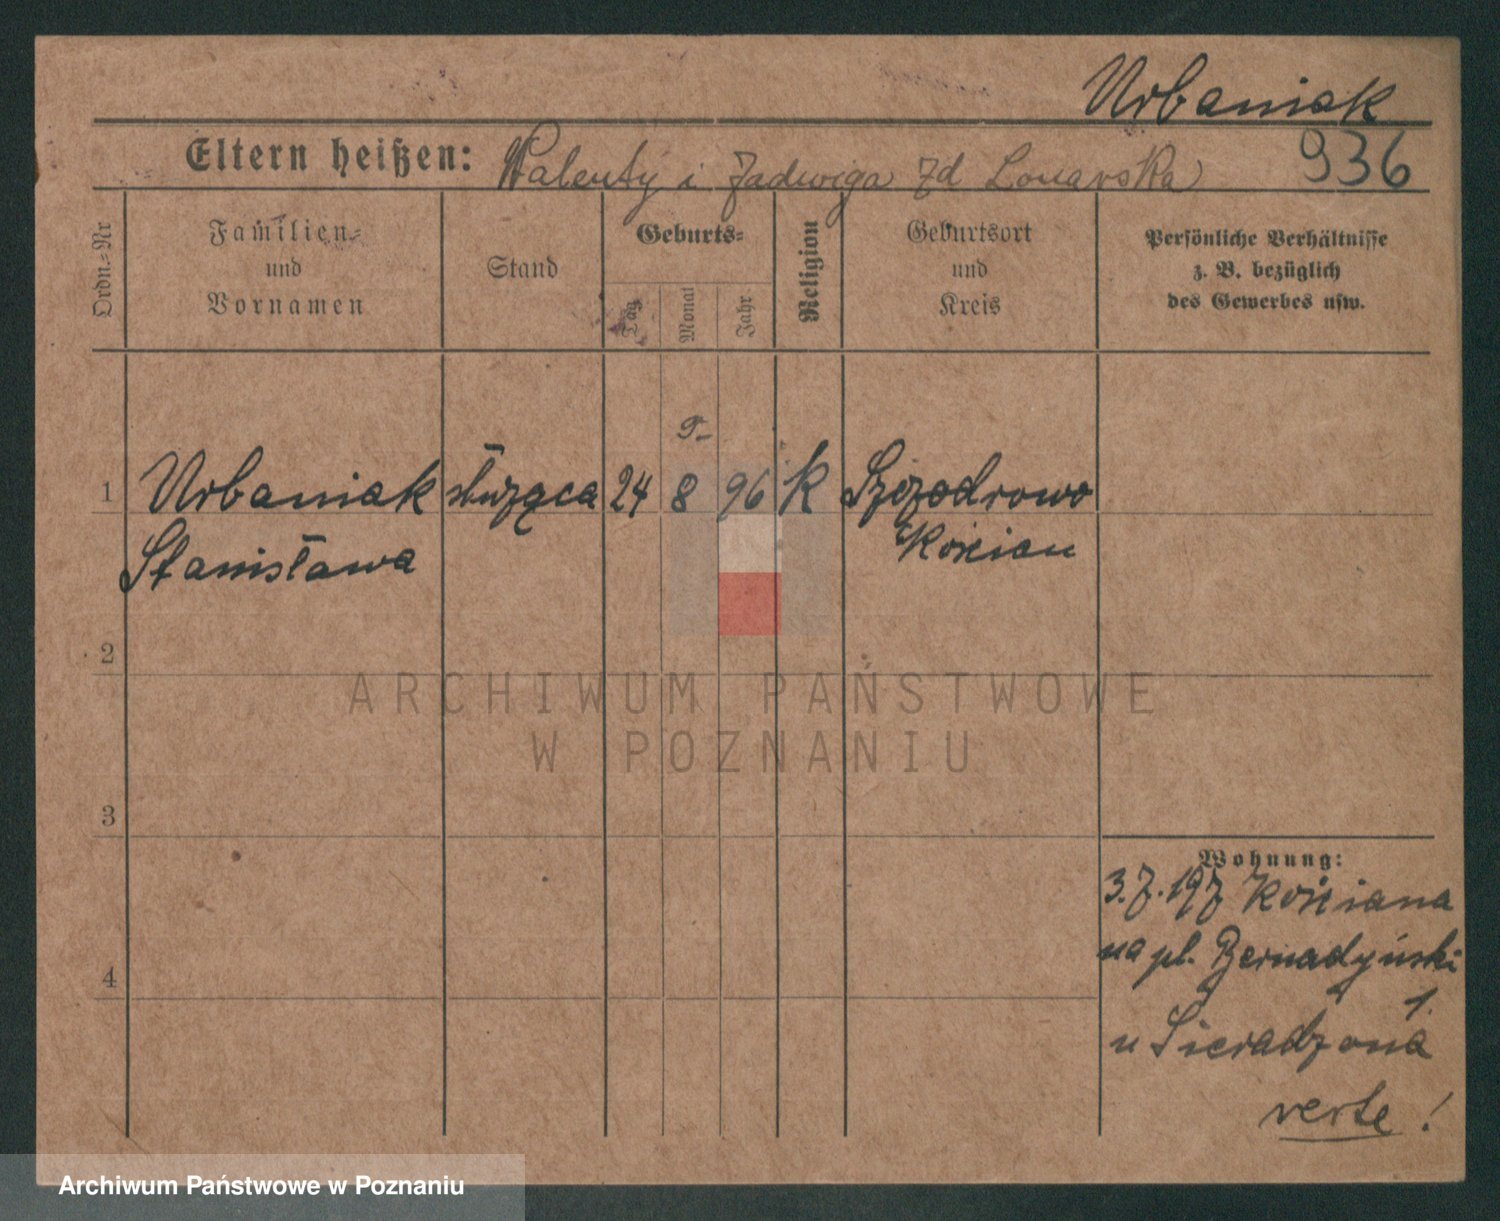 Urbaniak
Eltern heißen: Walenty i Jadwiga zd 936
Ordn.-Nr
Familien-
und
Vornamen
Stand
Geburts-
Tag
Monat
Jahr
Religion
Geburtsort
und
Kreis
Persönliche Verhältnisse
z. B. bezüglich
des Gewerbes usw.
1 Urbaniak służąca 24 8 96 k Szczodrowo
Stanisława Kościan
2
3
4
Wohnung:
3.7.197 Kościana
na pl. Bernadyński
1.
u
verte!
ARCHIWUM PAŃSTWOWE
W POZNANIU
Archiwum Państwowe w Poznaniu